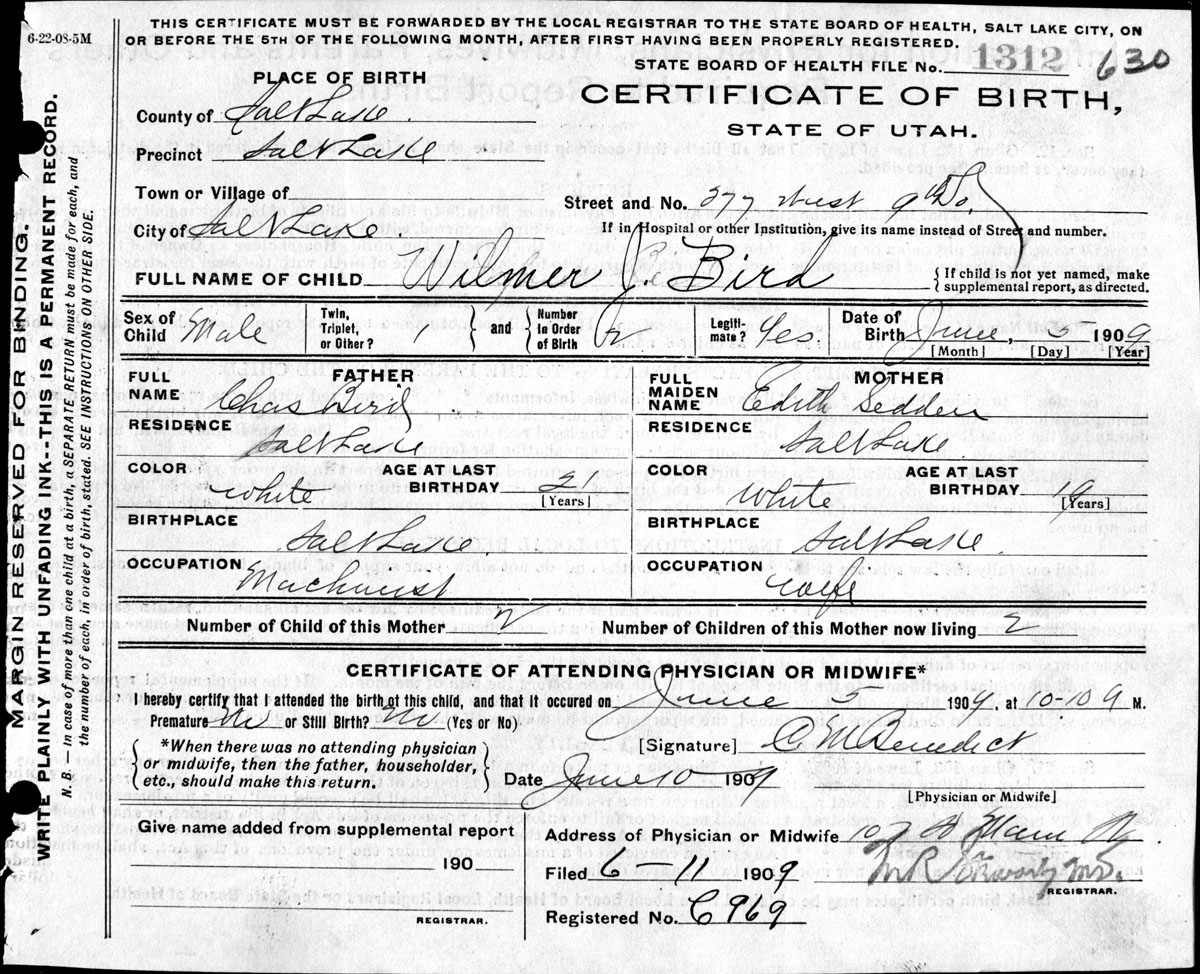 6-22-08-5M
THIS CERTIFICATE MUST BE FORWARDED BY THE LOCAL REGISTRAR TO THE STATE BOARD OF HEALTH, SALT LAKE CITY, ON
OR BEFORE THE 5TH OF THE FOLLOWING MONTH, AFTER FIRST HAVING BEEN PROPERLY REGISTERED.
STATE BOARD OF HEALTH FILE No. 1312 630
CERTIFICATE OF BIRTH,
STATE OF UTAH.
PLACE OF BIRTH
County of Salt Lake.
Precinct Salt Lake
Town or Village of
City of Salt Lake.
Street and No. 377 West 9th So.
If in Hospital or other Institution, give its name instead of Street and number.
FULL NAME OF CHILD Wilmer J. Bird
{ If child is not yet named, make
supplemental report, as directed.
Sex of Child Male
Twin, Triplet, or Other? } and { Number in Order of Birth 2
Legitimate? Yes.
Date of Birth June, 1909
[Month] [Day] [Year]
FATHER
FULL NAME Chas Bird
RESIDENCE Salt Lake
COLOR White AGE AT LAST BIRTHDAY 21 [Years]
BIRTHPLACE Salt Lake.
OCCUPATION Machinist
MOTHER
FULL MAIDEN NAME Edith Sedden
RESIDENCE Salt Lake
COLOR White AGE AT LAST BIRTHDAY 19 [Years]
BIRTHPLACE Salt Lake.
OCCUPATION Wife
Number of Child of this Mother 2 Number of Children of this Mother now living 2
CERTIFICATE OF ATTENDING PHYSICIAN OR MIDWIFE*
I hereby certify that I attended the birth of this child, and that it occured on June 1909, at M.
Premature No or Still Birth? No (Yes or No).
*When there was no attending physician
or midwife, then the father, householder,
etc., should make this return.
[Signature] C M Benedict
Date June 10 1909
[Physician or Midwife]
Give name added from supplemental report
190
REGISTRAR.
Address of Physician or Midwife Main St.
Filed 6 11 1909
REGISTRAR.
Registered No. 6969
MARGIN RESERVED FOR BINDING.
WRITE PLAINLY WITH UNFADING INK--THIS IS A PERMANENT RECORD.
N. B. In case of more than one child at a birth, SEPARATE RETURN must be made for each, and
the number of each, in order of birth, stated. SEE INSTRUCTIONS ON OTHER SIDE.